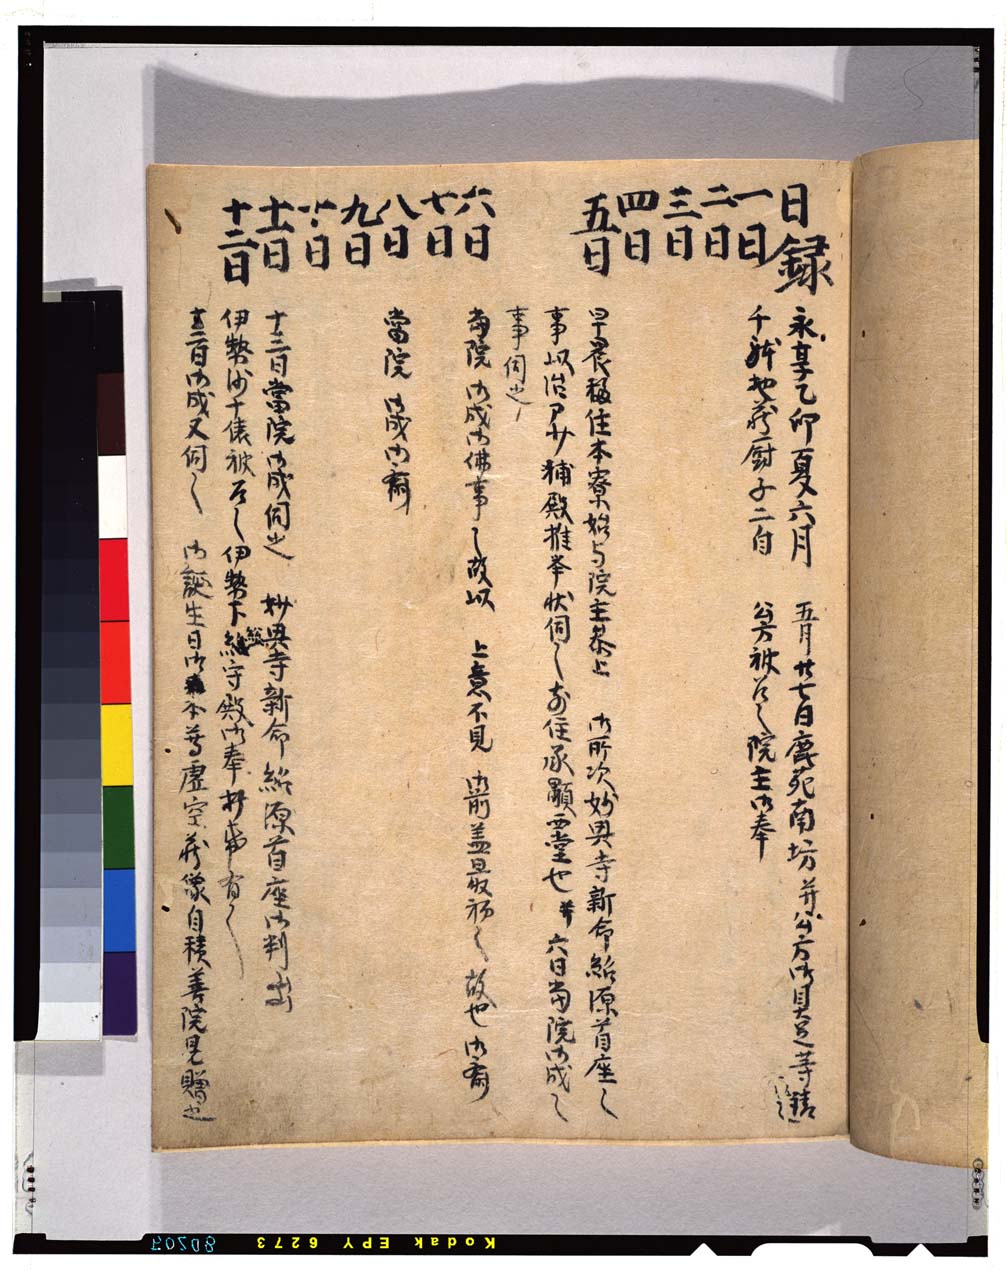 日録 永享乙卯夏六月 五月廿七日鹿苑南坊并公方御具足等
一日 千躰地蔵厨子二自 公方被召之院主御奉
二日
三日
四日
五日 早晨移住本寮始与院主参上 御所次妙興寺新命紹源首座之
事以 少輔殿推挙状伺之 前住承顕西堂也 六日当院御成之
事伺之
六日 当院御成御佛事之故以 上意不見 御前盖最初之故也 御斎
七日
八日 當院 御成御斎
九日
十日
十一日 十三日當院御成伺之 妙興寺新命紹源首座御判出
十二日 伊勢 十俵被召之 伊勢下総守殿御奉 有之
十三日御成又伺之 御誕生日御本尊虚空蔵像自積善院見贈之
Kodak EPY 6273
50208